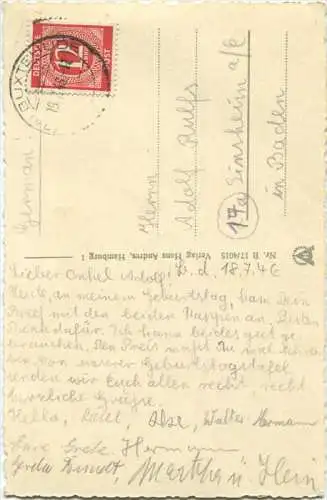 DEUTSCHE POST
12
BUXTEHUDE
German
Herrn
Adolf Rulfs
17a Sinsheim a/E
in Baden
Nr. B 174015 Verlag Hans Andres, Hamburg 1
Lieber Onkel Adolf! B. d. 18.7.46
Heute, an meinem Geburtstag, kam Dein
Brief mit den beiden Mappen an. Vielen
Dank dafür. Ich kann beides gut ge-
brauchen. Den Preis mußt Du
von unserer Geburtstagstafel
senden wir Euch allen recht, recht
herzliche Grüße.
Hella, Ilse, Walter Hermann
Grete Hermann
Greta Martha u. Hein